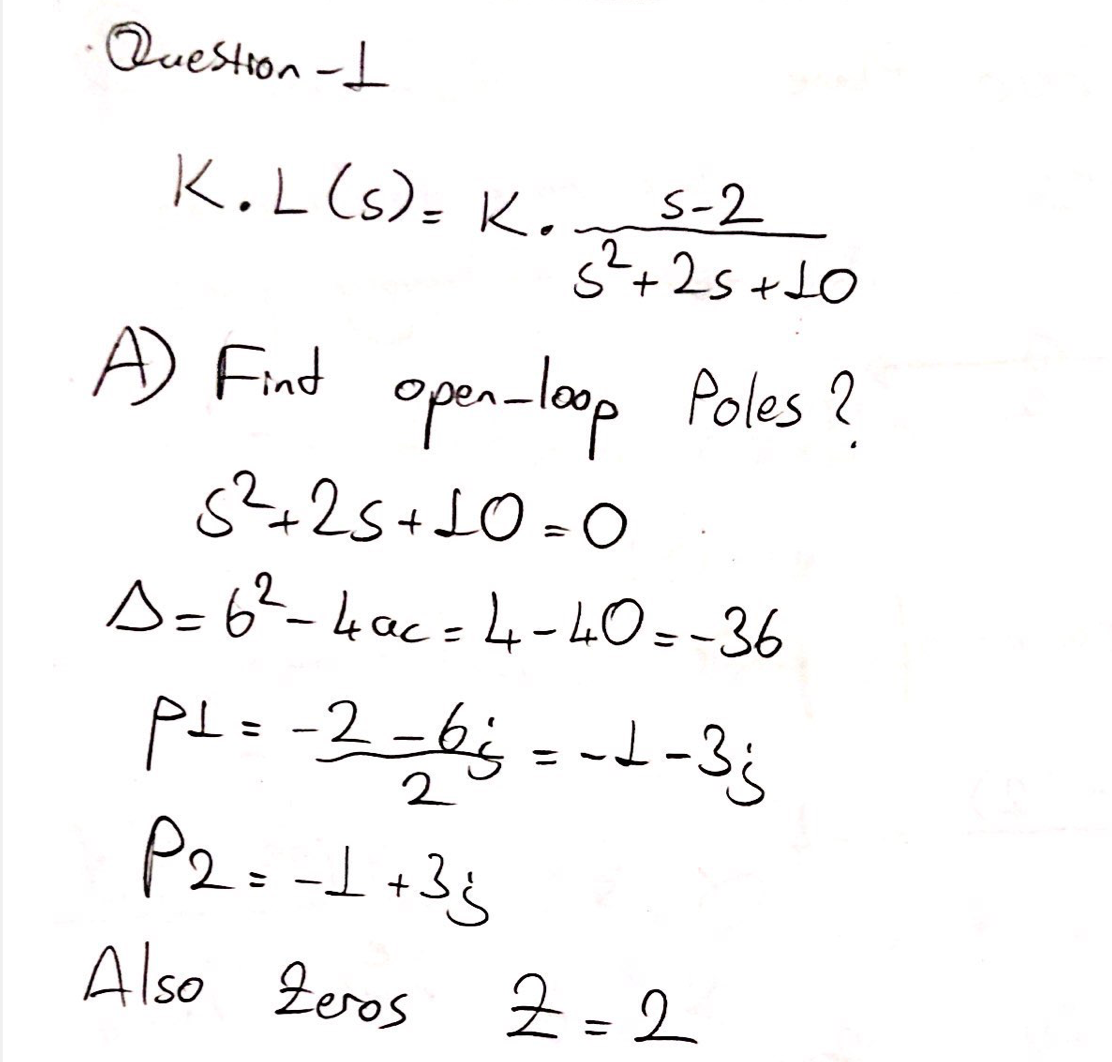 Question-1
K.L(s) = K. s-2 / s²+2s+10
A) Find open-loop Poles?
s²+2s+10=0
Δ=b²-4ac=4-40=-36
P1 = -2-6j / 2 = -1-3j
P2 = -1+3j
Also Zeros Z=2